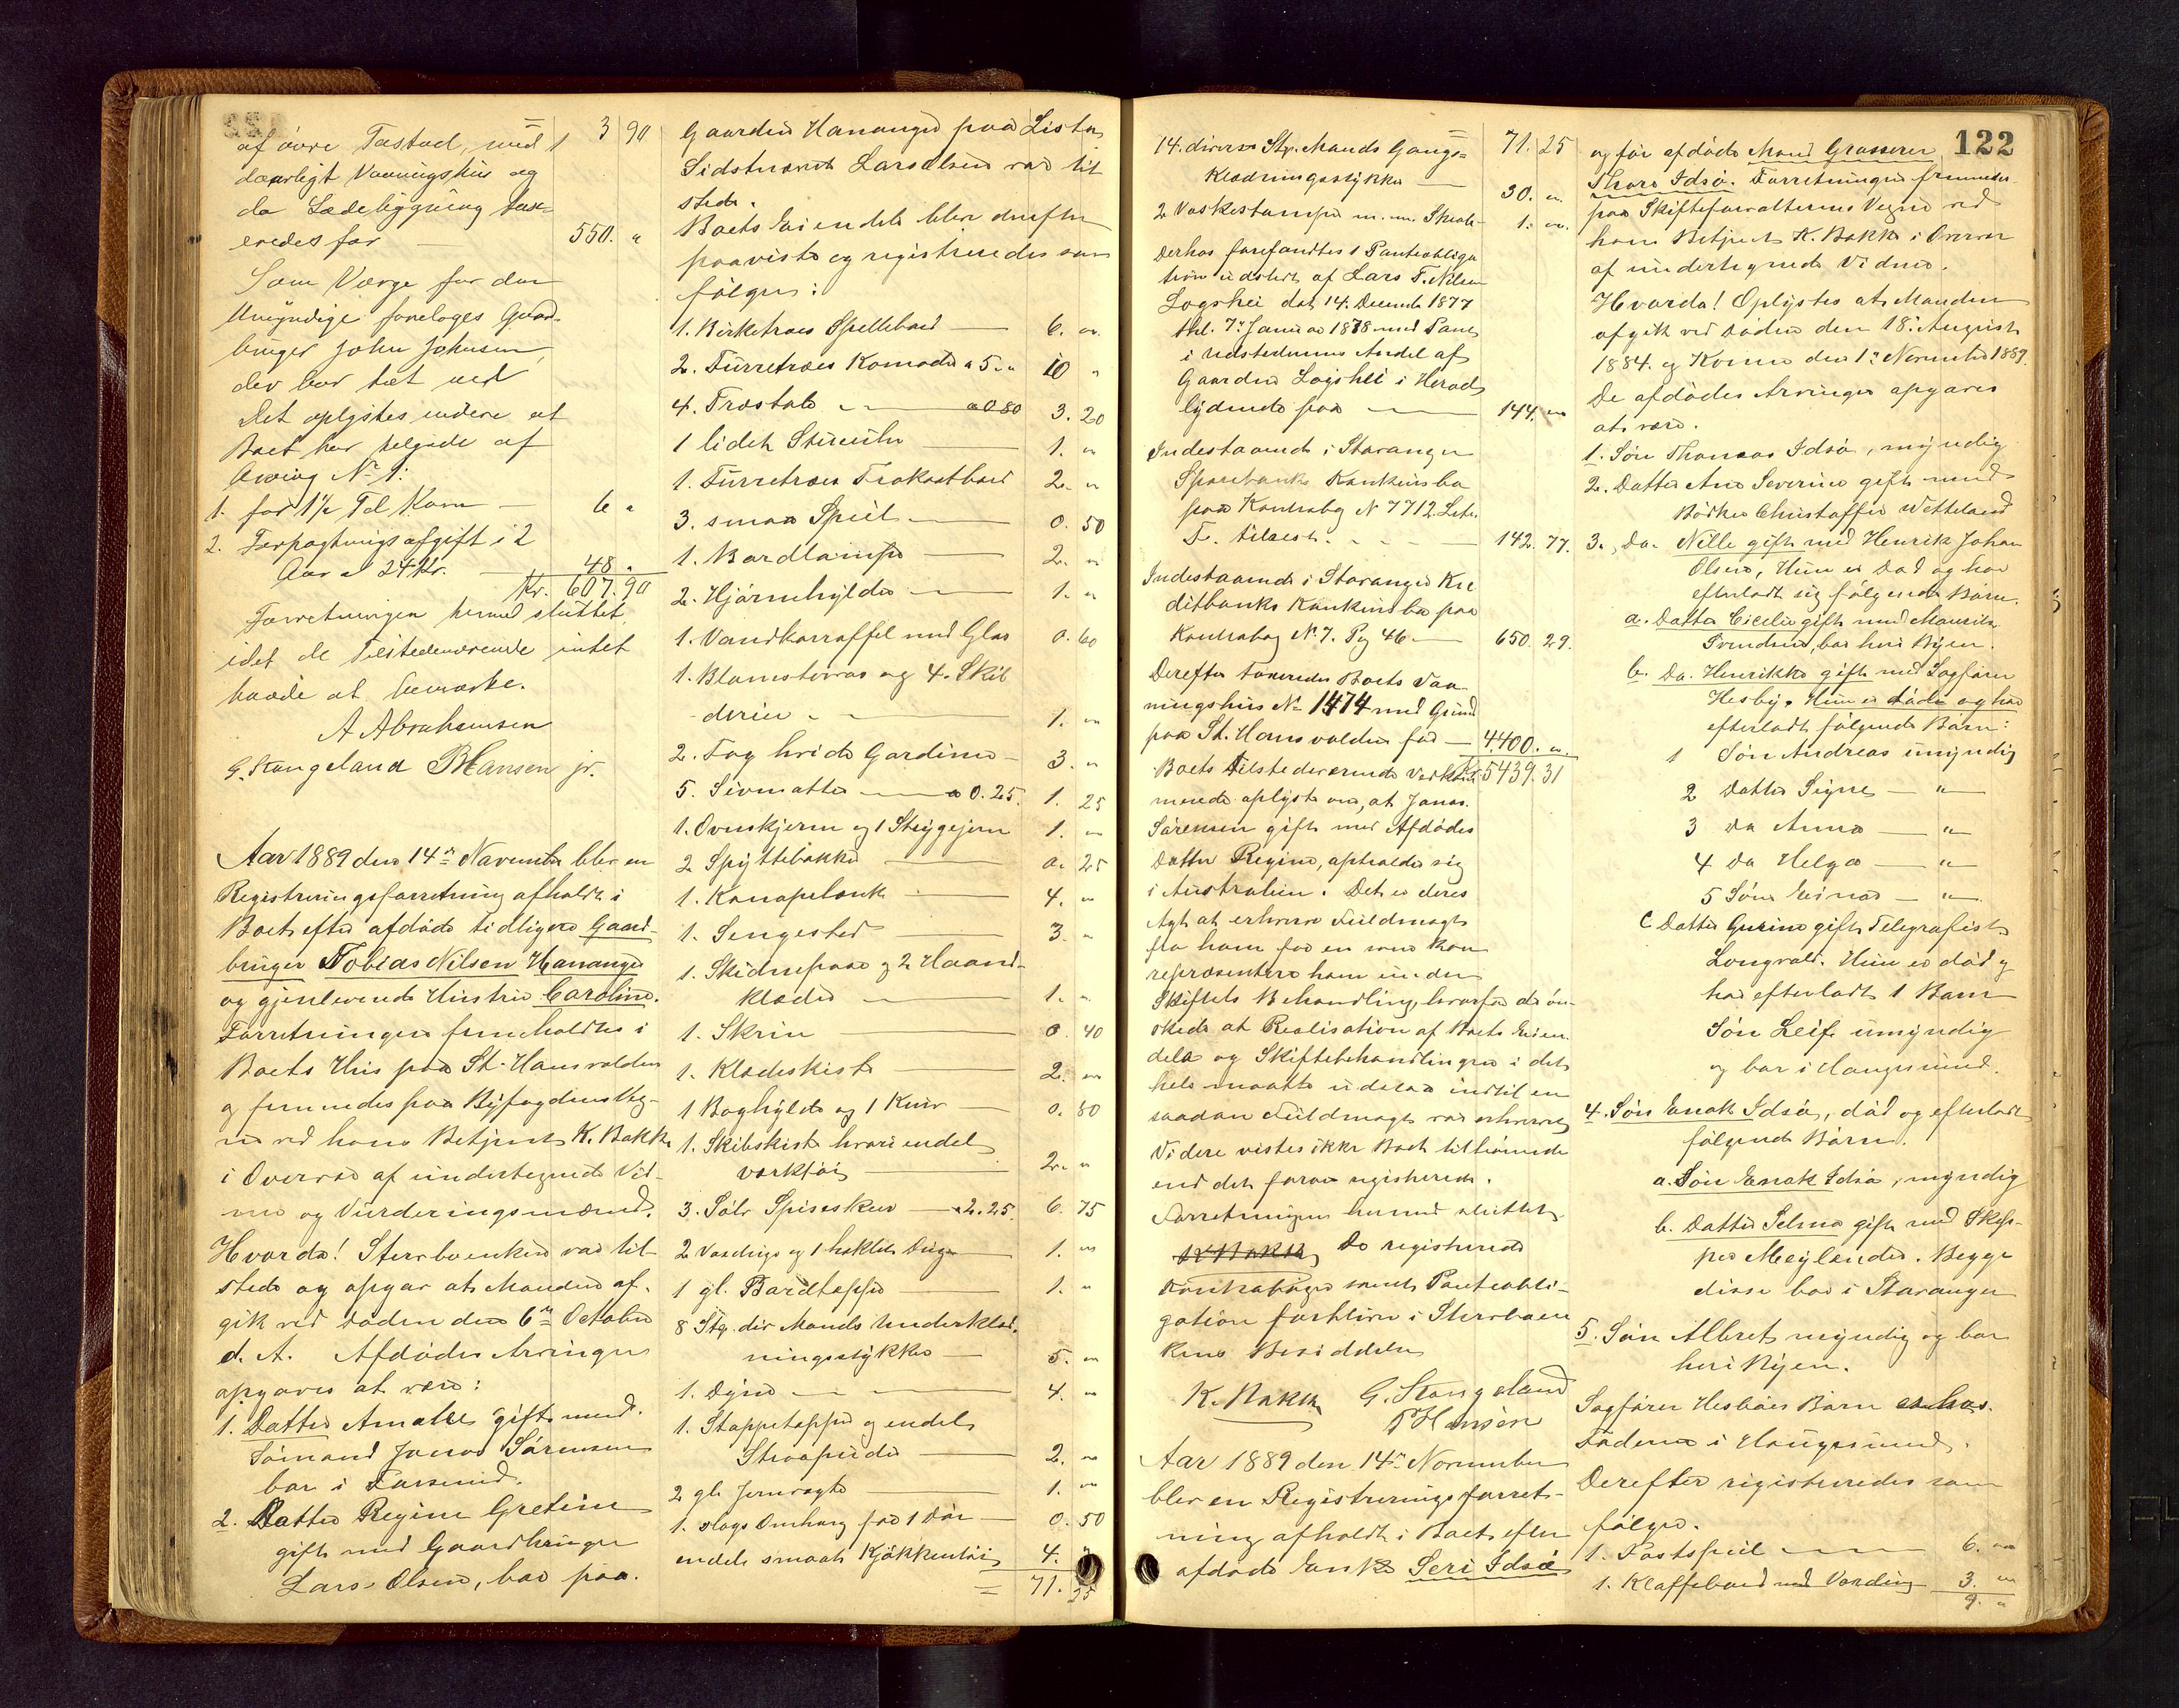 af övre Tastad, med 1 = 3 90
daarligt Vaaningshus og
do Ladebygning tax-
eredes for 550. "
Som Værge for den
Umyndige foreloges Gaard-
bruger John Johnsen,
der bor tæt ved
Det oplystes videre at
Boet har tilgode af
Arving No 1:
1. for 1½ Td Korn — 6 "
2. Forpagtningsafgift i 2
Aar a 24 Kr. 48 "
Kr. 607.90
Forretningen hermed sluttet,
idet de Tilstedeværende intet
havde at bemærke.
A Abrahamsen
G. Stangeland PHansen jr.
Aar 1889 den 14de November blev en
Registreringsforretning afholdt i
Boet efter afdøde tidligere Gaard-
bruger Tobias Nilsen Hananger
og gjenlevende Hustru Caroline.
Forretningen fremholdtes i
Boets Hus paa St. Hansvolden
og fremmedes paa Byfogdens Veg-
ne ved hans Betjent K. Bakke
i Overvær af undertegnede Vid-
ne og Vurderingsmænd.
Hvorda! Sterboenken var til-
stede og opgav at Manden af-
gik ved Døden den 6te October
d. A. Afdødes Arvinger
opgaves at være:
1. Datter Amalie gift med
Sömand Jonas Sörensen
bor i Farsund.
2. Datter Regine Gretine
gift med Gaardbruger
Lars Olsen, bor paa
Gaarden Hananger paa Lister
Sidstnævnte Lars Olsen var til
stede.
Boets Eiendele blev derefter
paavist og registreredes som
følger:
1. Birketræes Spillebord — 6. "
2. Furretræes Komoder a 5. " 10 "
4. Træstole — a 0 80 3. 20
1 lidet Stueuhr — 1. "
1. Furretræes Frokostbord 2. "
3. smaa Speil — 0. 50
1. Bordlampe — 2. "
2. Hjørnehylder — 1. "
1. Vandkarraffel med Glas 0. 60
1. Blomstervas og 4. Skil
derier — 1. "
2. Fag hvide Gardiner — 3. "
5. Sivmatter — a 0.25. 1. 25
1. Ovnskjerm og 1 Strygejern 1. "
2 Spyttebakker — 0. 25
1. Kanapebænk — 4. "
1. Sengested — 3. "
1. Skidnepose og 2 Haand-
klæder — 1. "
1. Skrin — 0. 40
1. Klædeskiste — 2. "
1 Boghylde og 1 Kurv — 0. 80
1. Skibskiste hvori endel
værktøi — 2. "
3. Sölv Spiseskeer — a 2.25. 6. 75
2 Vardings og 1 heklet Dug — 1. "
1 gl. Bordteppe — 1. "
8 Stg. div Mands Underklæd-
ningsstykker — 5. "
1. Dyne — 4. "
1. Stoppeteppe og endel
Straapuder — 2. "
2 gl. Jernvægte — 1. "
1. slags Omhæng for 1 Dør — 0. 50
endel smaat Kjøkkentøi 4. "
= 71. 25
122
14. diverse Stg. Mands Gangs= 71. 25
Klædningsstykker — 30. "
2 Vaskestamper m.m. Skrab- 1. "
Derhos forefandtes 1 Panteobliga
tion udstedt af Lars T. Nilsen
Logshei dat. 14. Decembr 1877
thl. 7de Januar 1878 med Pant
i Udstederens Andel af
Gaarden Logshei i Herad
lydende paa — 144. "
Indestaaende i Stavanger
Sparebanks Kontrabog
paa Kontrabog No 7712 Litr.
F. tilvest. — 142. 77.
Indestaaende i Stavanger Kre
ditbanks paa
Kontrabog No. 7. Pg 46 — 650. 29.
Derefter taxeredes Boets Vaa-
ningshus No 1474 med Grund
paa St. Hansvolden for — 4400. "
Boets Tilstedeværende Vedkom- Kr. 5439.31
mende oplyste om, at Jonas
Sörensen gift med Afdødes
Datter Regine, opholder sig
i Australien. Det er deres
Agt at erhverve Fuldmagt
fra ham for en som kan
repræsentere ham under
Skiftets Behandling, hvorfor de øn-
skede at Realisation af Boets Eien-
dele og Skiftebehandlingen i det
hele maatte udestaa indtil en
saadan Fuldmagt var erhvervet
Videre vistes ikke Boet tilhørende
end det foran registrerede.
Forretningen hermed sluttet
K Bakke De registrerede
Kontrabøger samt Panteobli-
gation forbliver i Sterboen
kens Besiddelse
K. Bakke G. Stangeland
PHansen
Aar 1889 den 14de November
blev en Registreringsforret-
ning afholdt i Boet efter
afdøde Enke Seri Idsø
og før afdøde Mand Grosserer
Thore Idsø. Forretningen fremmedes
paa Skifteforvalterens Vegne ved
hans Betjent K. Bakke i Overvær
af undertegnede Vidner.
Hvorda! Oplystes at Manden
afgik ved Døden den 18de August
1884. og Konen den 1ste November 1889.
De afdødes Arvinger opgaves
at være.
1. Søn Thomas Idsø, myndig
2. Datter Ane Severine gift med
Bødker Christoffer Vetteland
3. Do. Nille gift med Henrik Johan
Olsen, Hun er Død og har
efterladt sig følgende Børn.
a. Datter Cicilie gift med Mauritz
Svendsen, bor her i Byen.
b. Do. Henrikke gift med Sagfører
Hesby. Hun er døde og har
efterladt følgende Børn:
1 Søn Andreas umyndig
2 Datter Signe — " —
3 Do Anna — " —
4 Do Helga — " —
5 Søn Einar — " —
C Datter Gurine gift Telegrafist
Longvald. Hun er død og
har efterladt 1 Barn
Søn Leif umyndig
og bor i Haugesund.
4. Søn Enok Idsø, død og efterladt
følgende Børn.
a. Søn Enok Idsø, myndig
b. Datter Selma gift med Skip-
per Meylander. Begge
disse bor i Stavanger
5. Søn Albret myndig og bor
her i Byen.
Sagfører Hesbøes Børn er hos
Faderen i Haugesund.
Derefter registreredes som
følger.
1. Fostspeil — 6. "
1. Klaffebord med Vending 3. "
9. "